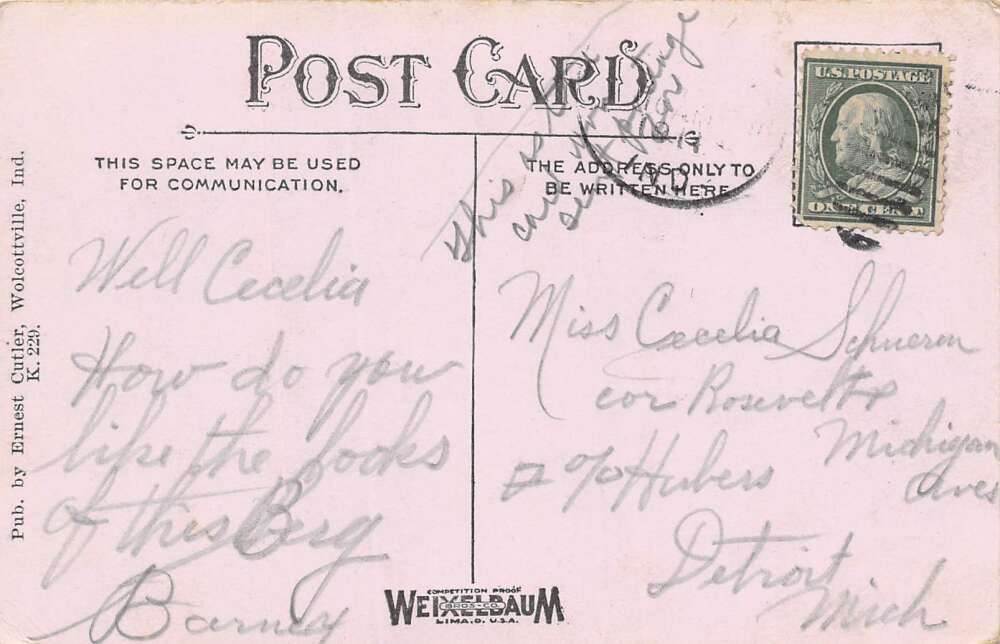 POST CARD
THIS SPACE MAY BE USED
FOR COMMUNICATION.
THE ADDRESS ONLY TO
BE WRITTEN HERE
U.S. POSTAGE
ONE CENT
IND
This is
Well Cecelia
How do you
like the looks
of this Berg
Barney
Miss Cecelia Schuerm
cor Rosevelt &
Michigan
Aves
% Hubers
Detroit
Mich
Pub. by Ernest Cutler, Wolcottville, Ind.
K. 229.
COMPETITION PROOF
WEIXELBAUM
BROS. CO.
LIMA, O. U.S.A.